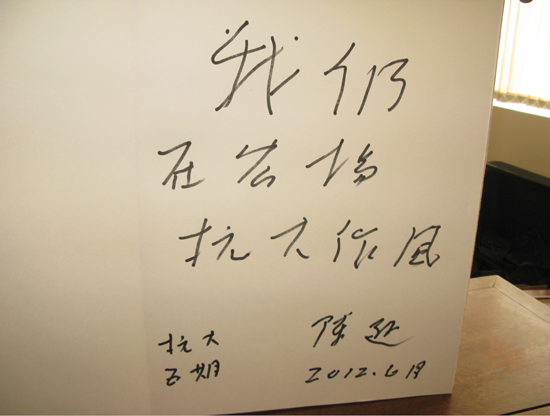 我们
在宏扬
抗大作风
抗大
五期
陈
2012.6月